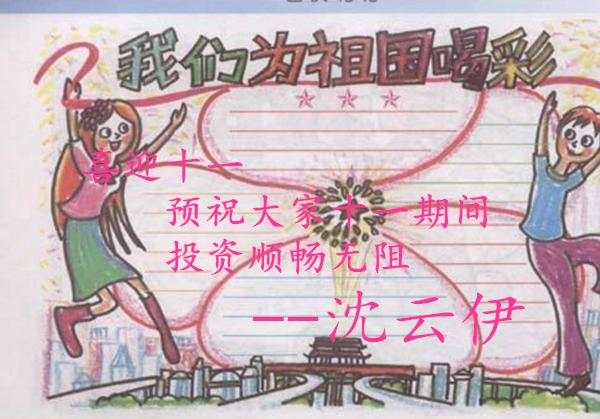 我们为祖国喝彩
喜迎十一
预祝大家十一期间
投资顺畅无阻
--沈云伊